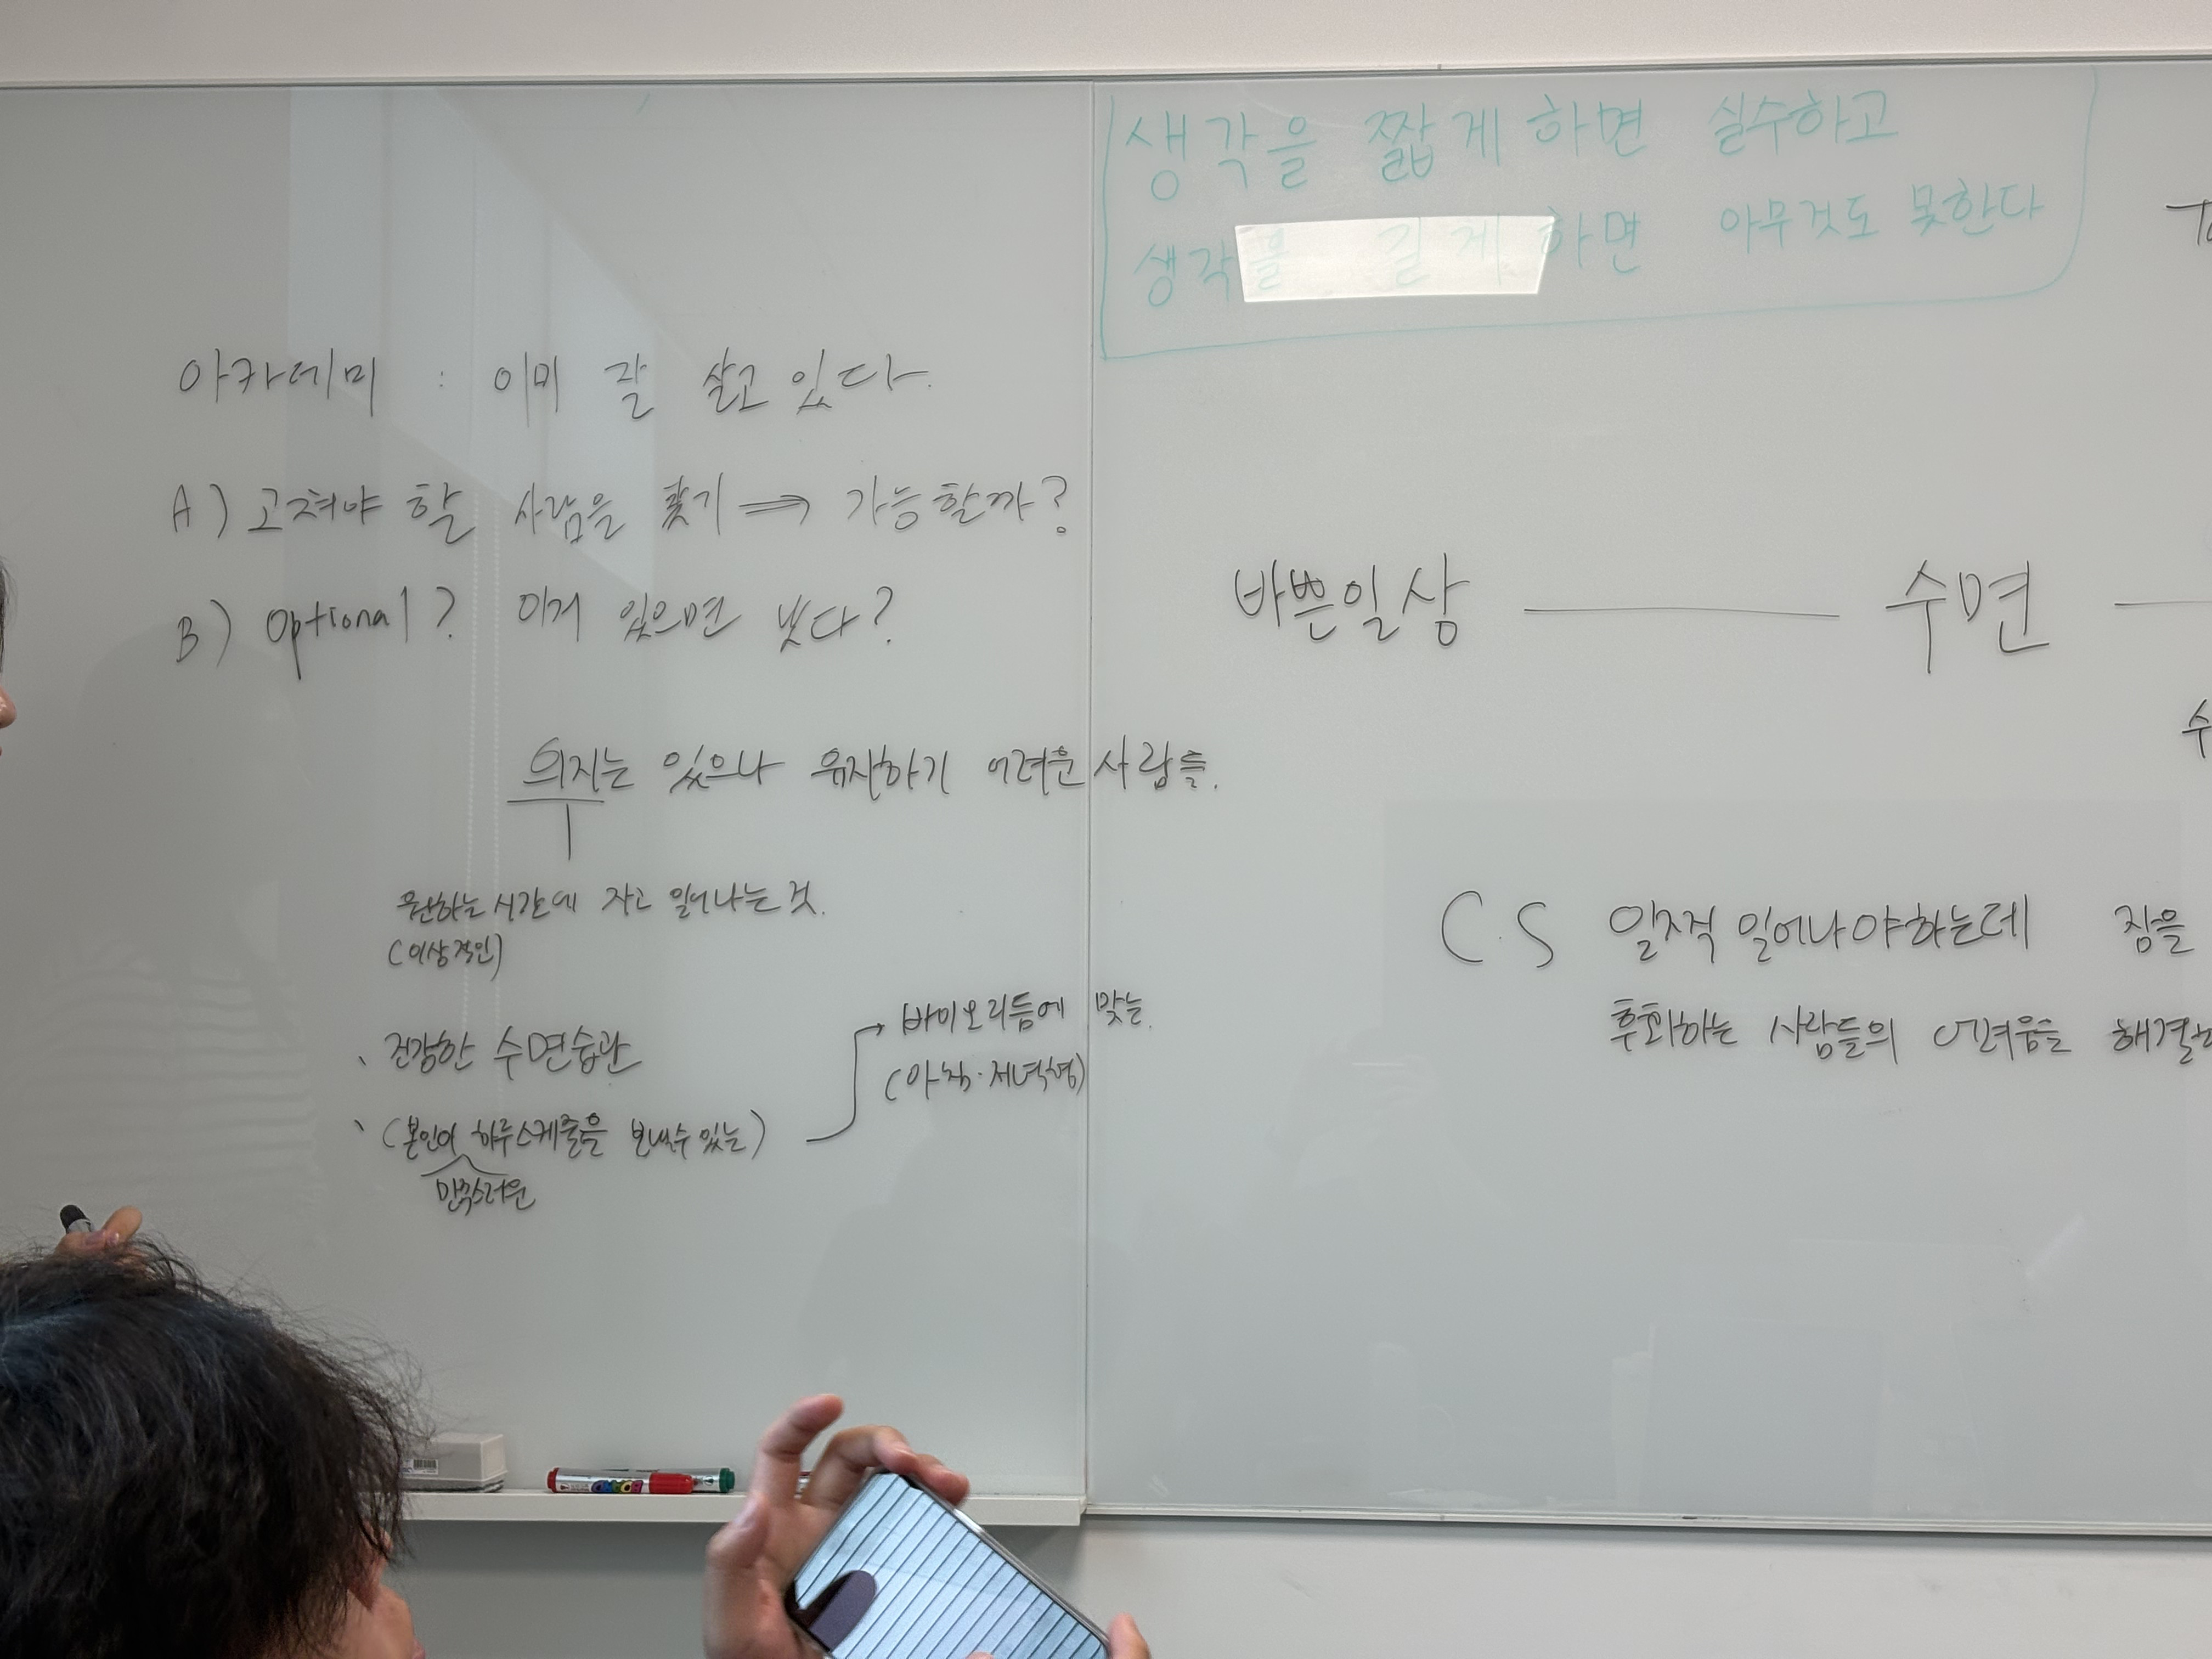 생각을 짧게 하면 실수하고
생각을 길게 하면 아무것도 못한다
아카데미 : 이미 잘 살고 있다.
A) 고쳐야 할 사람을 찾기 ⇒ 가능할까?
B) Optional? 이거 있으면 낫다?
의지는 있으나 유지하기 어려운 사람들.
원하는 시간에 자고 일어나는 것.
(이상적인)
건강한 수면습관
(본인이 하루스케줄을 보낼수 있는)
만족스러운
→ 바이오리듬에 맞는.
(아침·저녁형)
바쁜일상 — 수면 —
수
C.S 일찍 일어나야하는데 잠을
후회하는 사람들의 어려움을 해결